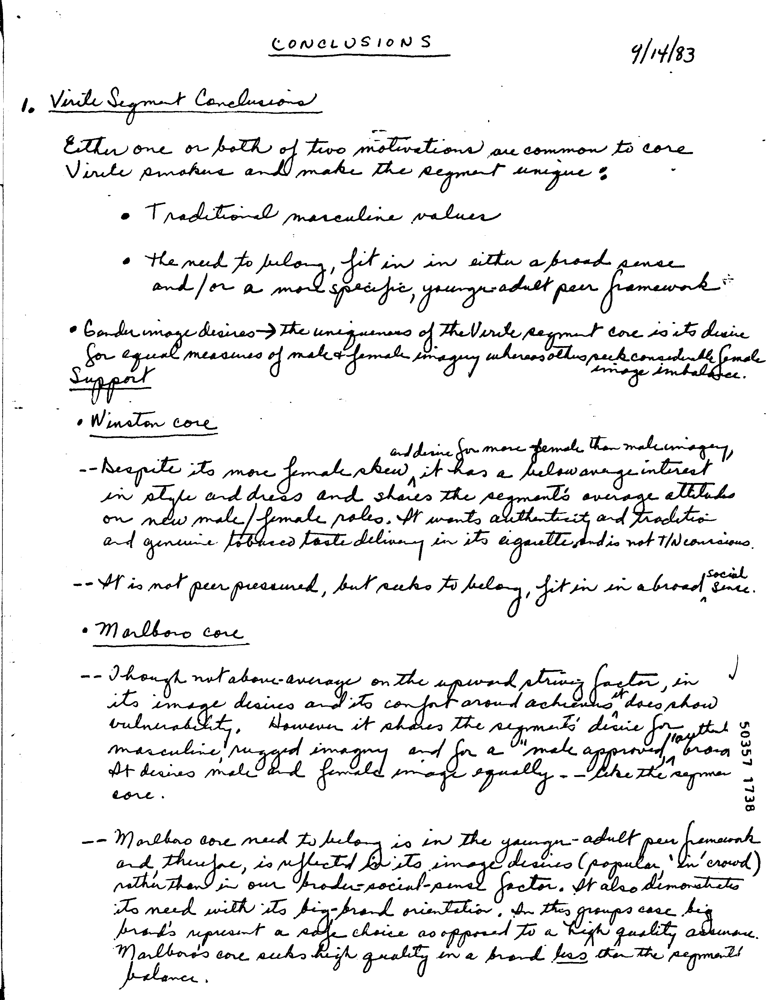 CONCLUSIONS
9/14/83
1. Virile Segment Conclusions
Either one or both of two motivations are common to core
Virile smokers and make the segment unique:
• Traditional masculine values
• the need to belong, fit in in either a broad sense
and/or a more specific, younger-adult peer framework
• Gender image desires → the uniqueness of the Virile segment core is its desire
for equal measures of male & female imagery whereas others seek considerable female
image imbalance.
Support
• Winston core
and desire for more female than male imagery,
-- Despite its more female skew, it has a below average interest
in style and dress and shares the segment's average attitudes
on new male/female roles. It wants authenticity and tradition
and genuine tobacco taste delivery in its cigarette, and is not T/N conscious.
social
-- It is not peer pressured, but seeks to belong, fit in in a broad sense.
• Marlboro core
-- Though not above-average on the upward striving factor, in
its image desires and its comfort around achievers it does show
vulnerability. However it shares the segments' desire for
masculine, rugged imagery and for a "male approved, brand
It desires male and female image equally -- like the segmen
core.
-- Marlboro core need to belong is in the younger-adult peer framework
and, therefore, is reflected in its image desires (popular, 'in' crowd)
rather than in our broader-social-sense factor. It also demonstrates
its need with its big-brand orientation. In this groups case big
brands represent a safe choice as opposed to a high quality assurance.
Marlboro's core seeks high quality in a brand less than the segments
balance.
50357 1738